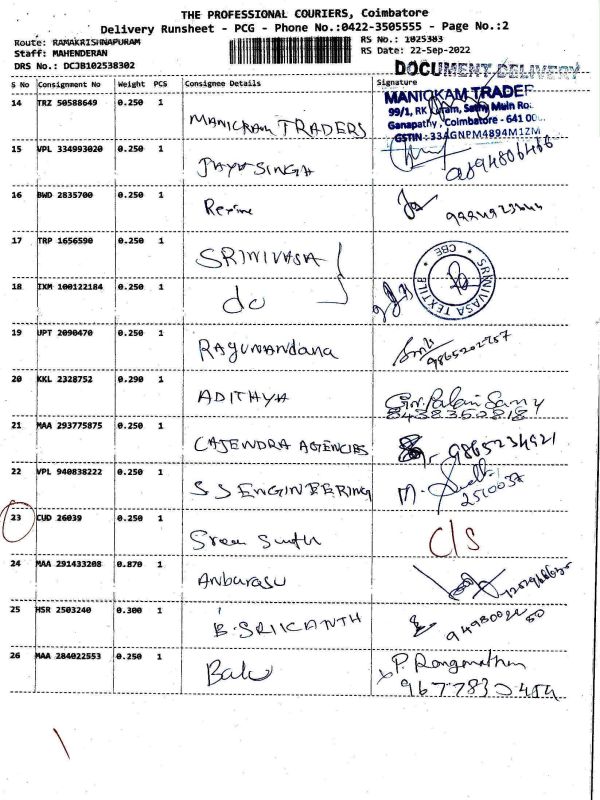 THE PROFESSIONAL COURIERS, Coimbatore
Delivery Runsheet - PCG - Phone No.:0422-3505555 - Page No.:2
Route: RAMAKRISHNAPURAM
RS No.: 1025383
Staff: MAHENDERAN
RS Date: 22-Sep-2022
DRS No.: DCJB102538302
DOCUMENT DELIVERY
S No Consignment No Weight PCS Consignee Details Signature
14 TRZ 50588649 0.250 1 MANICKAM TRADERS
MANICKAM TRADER
99/1, RK Sathy Main Ro
Ganapathy, Coimbatore - 641 00
GSTIN : 33AGNPM4894M1ZM
15 VPL 334993020 0.250 1 JAYA SINGH
16 BWD 2835700 0.250 1
17 TRP 1656590 0.250 1 SRINIVASA
SRINIVASA TEXTILE * CBE *
18 IXM 100122184 0.250 1 do
19 UPT 2090470 0.250 1 RAGUNANDANA
20 KKL 2328752 0.290 1 ADITHYA
8438352818
21 MAA 293775875 0.250 1 CAJENDRA AGENCIES 9865234921
22 VPL 940838222 0.250 1 S S ENGINEERING
23 CUD 26039 0.250 1 C/S
24 MAA 291433208 0.870 1 Anbarasu
25 HSR 2503240 0.300 1 B. SRIICANTH
26 MAA 284022553 0.250 1 Balu P. Ranganathan